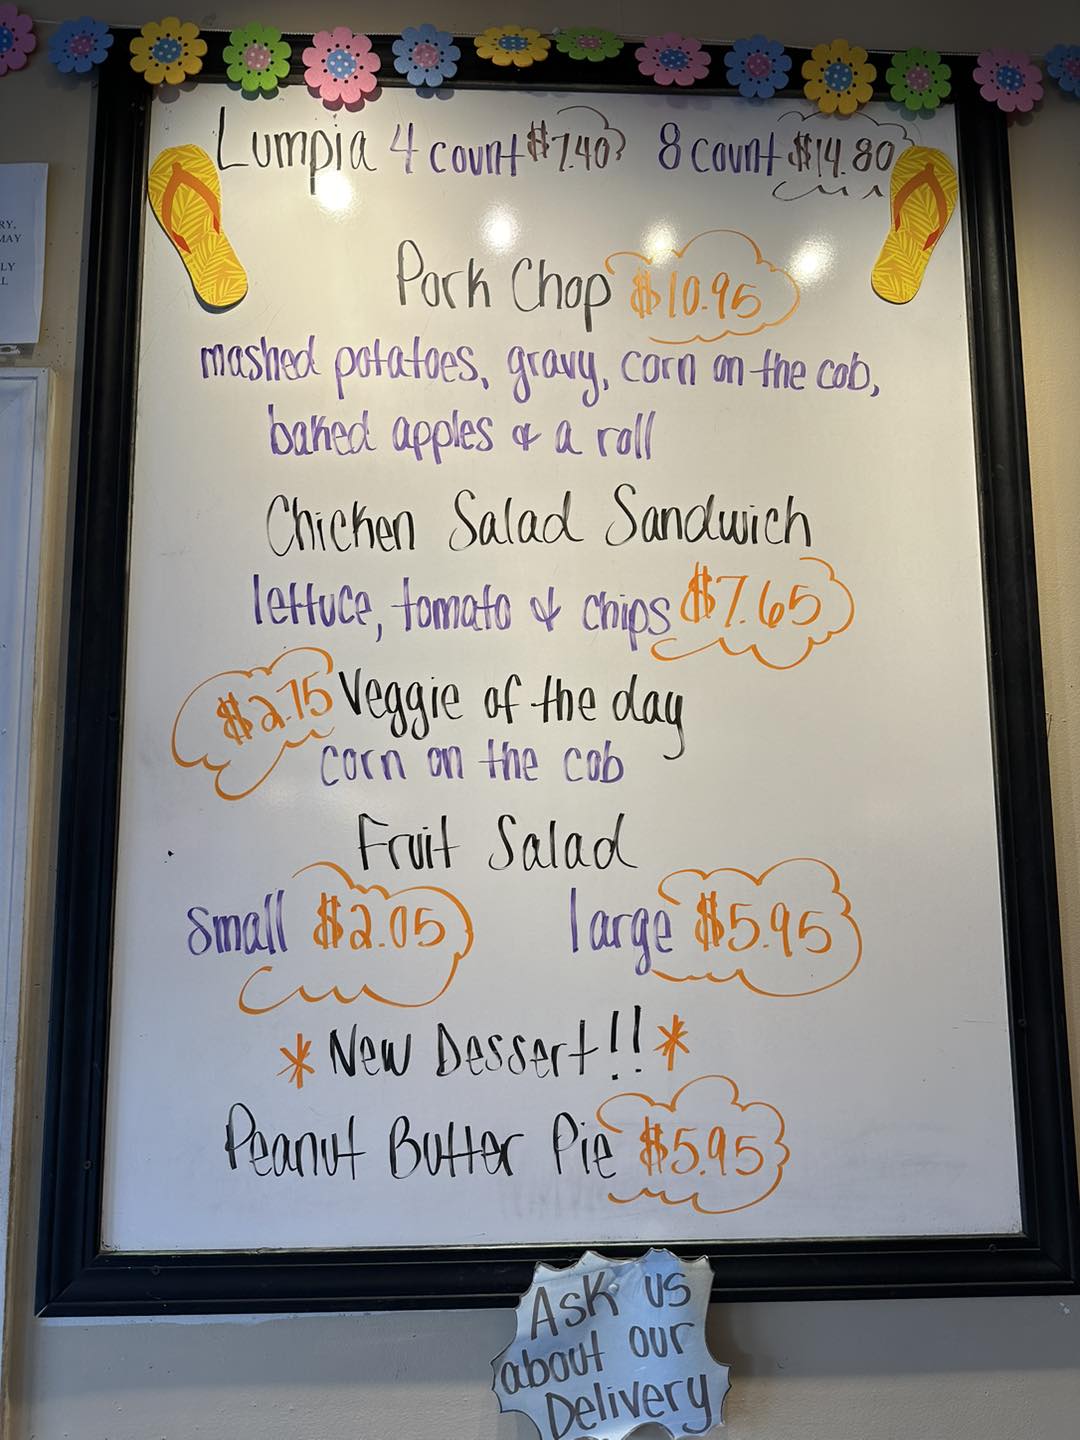 Lumpia 4 count $7.40 8 count $14.80
Pork Chop $10.95
mashed potatoes, gravy, corn on the cob,
baked apples & a roll
Chicken Salad Sandwich
lettuce, tomato & chips $7.65
$2.75 Veggie of the day
corn on the cob
Fruit Salad
small $2.05 large $5.95
* New Dessert!! *
Peanut Butter Pie $5.95
Ask us
about our
Delivery
RY,
MAY
LY
L